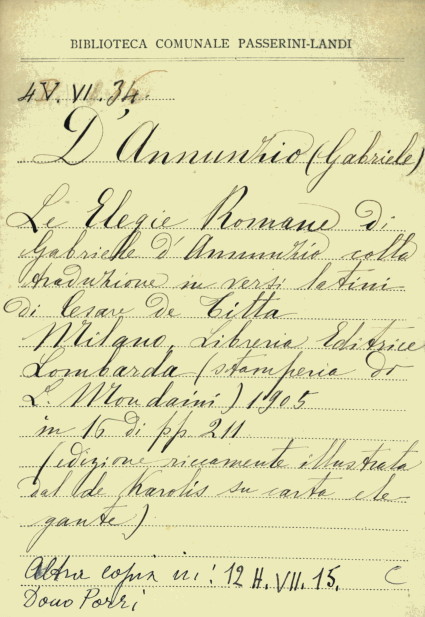 BIBLIOTECA COMUNALE PASSERINI-LANDI
4V.VI.34.
D'Annunzio (Gabriele)
Le Elegie Romane di
Gabriele d'Annunzio colla
traduzione in versi latini
di Cesare de Titta
Milano, Libreria Editrice
Lombarda (stamperia di
L. Mondaini) 1905
in 16 di pp 211
(edizione riccamente illustrata
dal de Karolis su carta ele-
gante)
Altra copia in: 12 H. VII. 15. C
Dono Porri